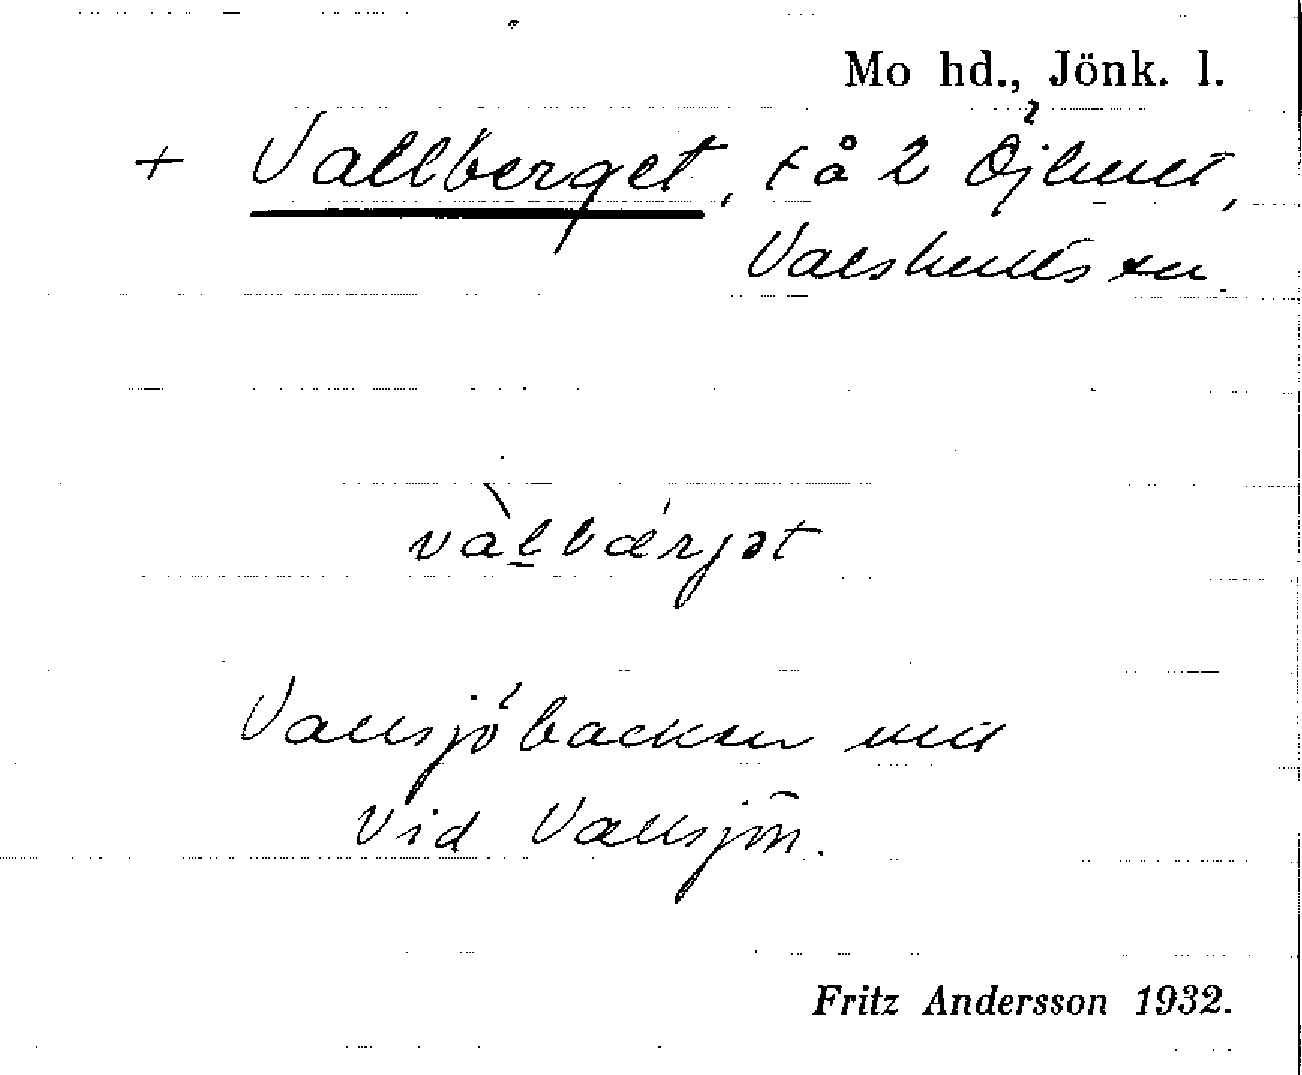 Mo hd., Jönk. l.
+ Vallberget, tå 2 Öjhult,
Valshults sn.
vàlbærjət
Vallsjöbacken intill
vid Vallsjön.
Fritz Andersson 1932.